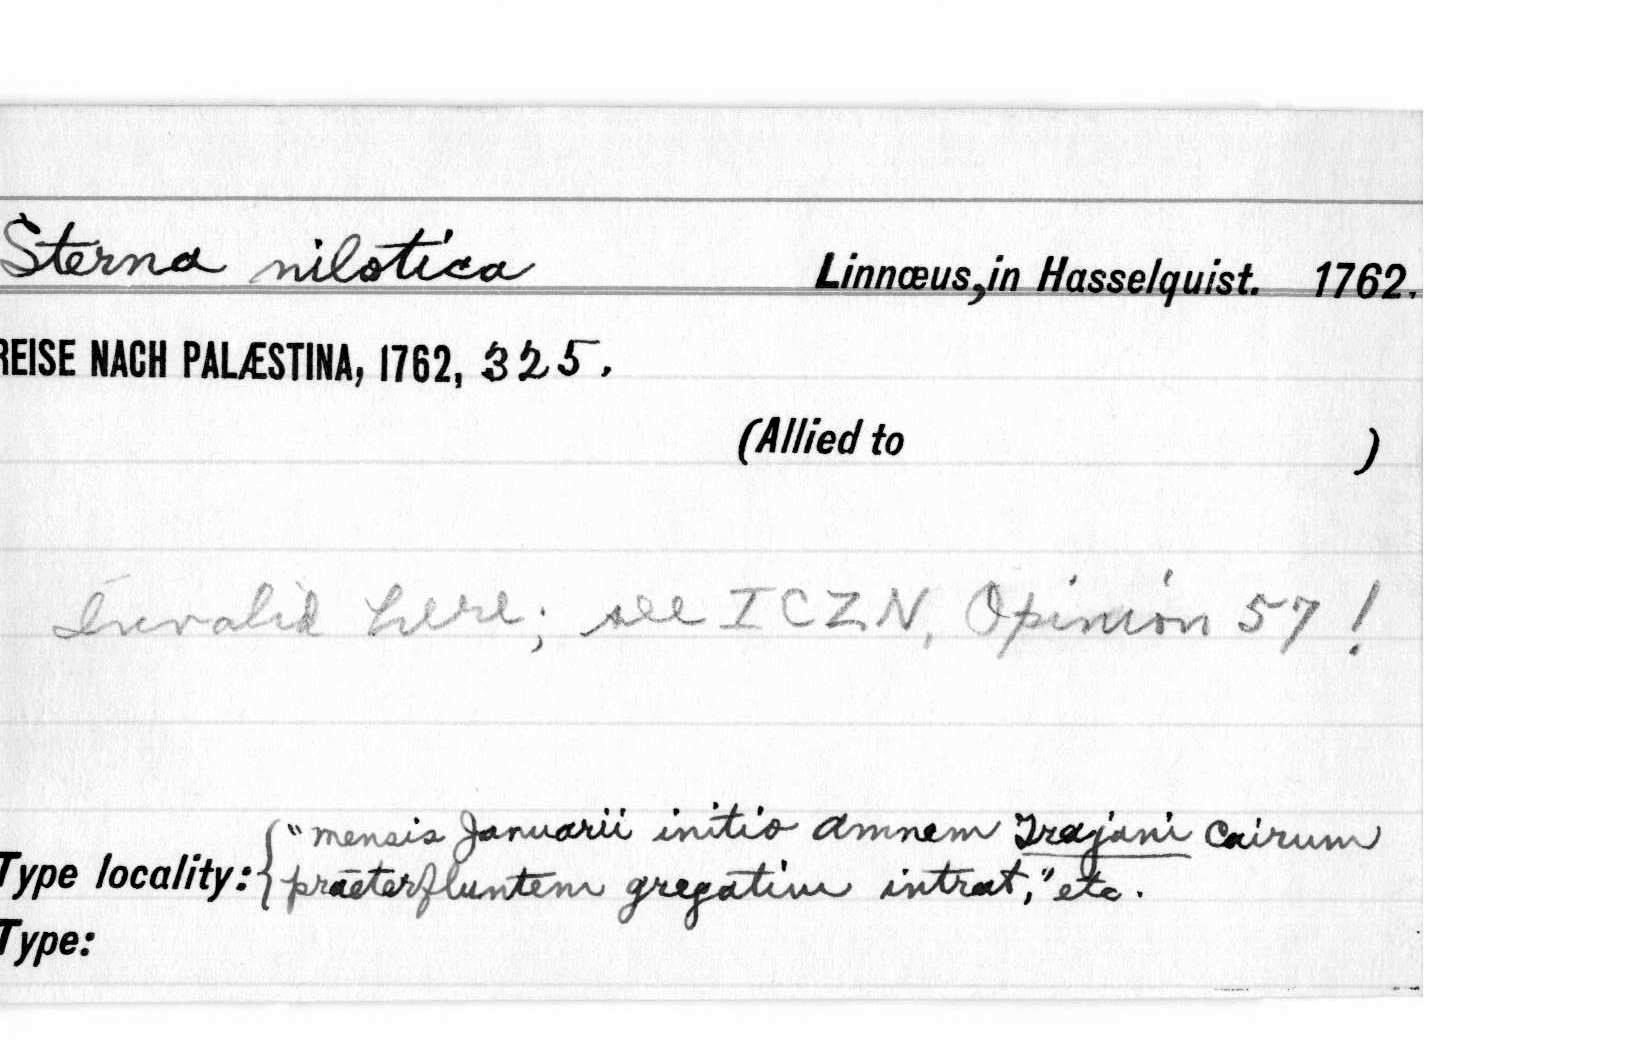 Sterna nilotica Linnœus, in Hasselquist. 1762.
REISE NACH PALÆSTINA, 1762, 325.
(Allied to )
Invalid here; see ICZN, Opinion 57!
Type locality: { "mensis Januarii initio amnem Trajani Cairum
praeterfluntem gregatim intrat," etc.
Type: